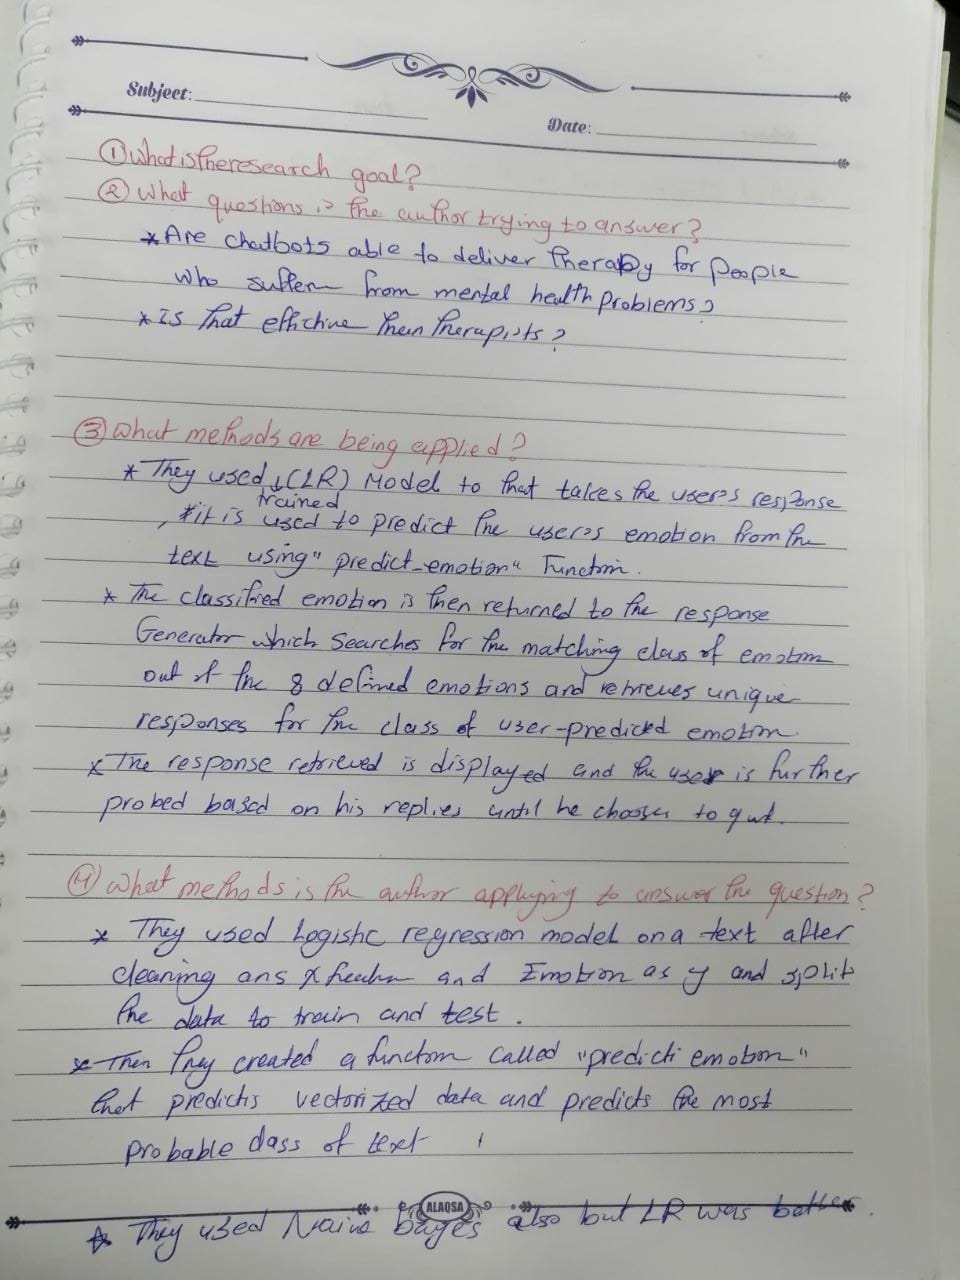 Subject:
Date:
① What is the research goal?
② What questions is the author trying to answer?
* Are chatbots able to deliver therapy for people
who suffer from mental health problems?
* Is that effictive then therapists?
③ What methods are being applied?
* They used ↓ (LR) Model to that takes the user's response
trained
, * it is used to predict the user's emotion from the
text using " predict_emotion " Function.
* The classified emotion is then returned to the response
Generator which searches for the matching class of emotion
out of the 8 defined emotions and retrieves unique
responses for the class of user-predicted emotion.
* The response retrieved is displayed and the user is further
probed based on his replies until he chooses to quit.
④ What methods is the author applying to answer the question?
* They used Logistic regression model on a text after
cleaning ans X and Emotion as y and split
the data to train and test .
* Then they created a function called "predicti emotion"
that predicts vectorized data and predicts the most
probable class of text
ALAQSA
* They used Naive bayes also but LR was better.